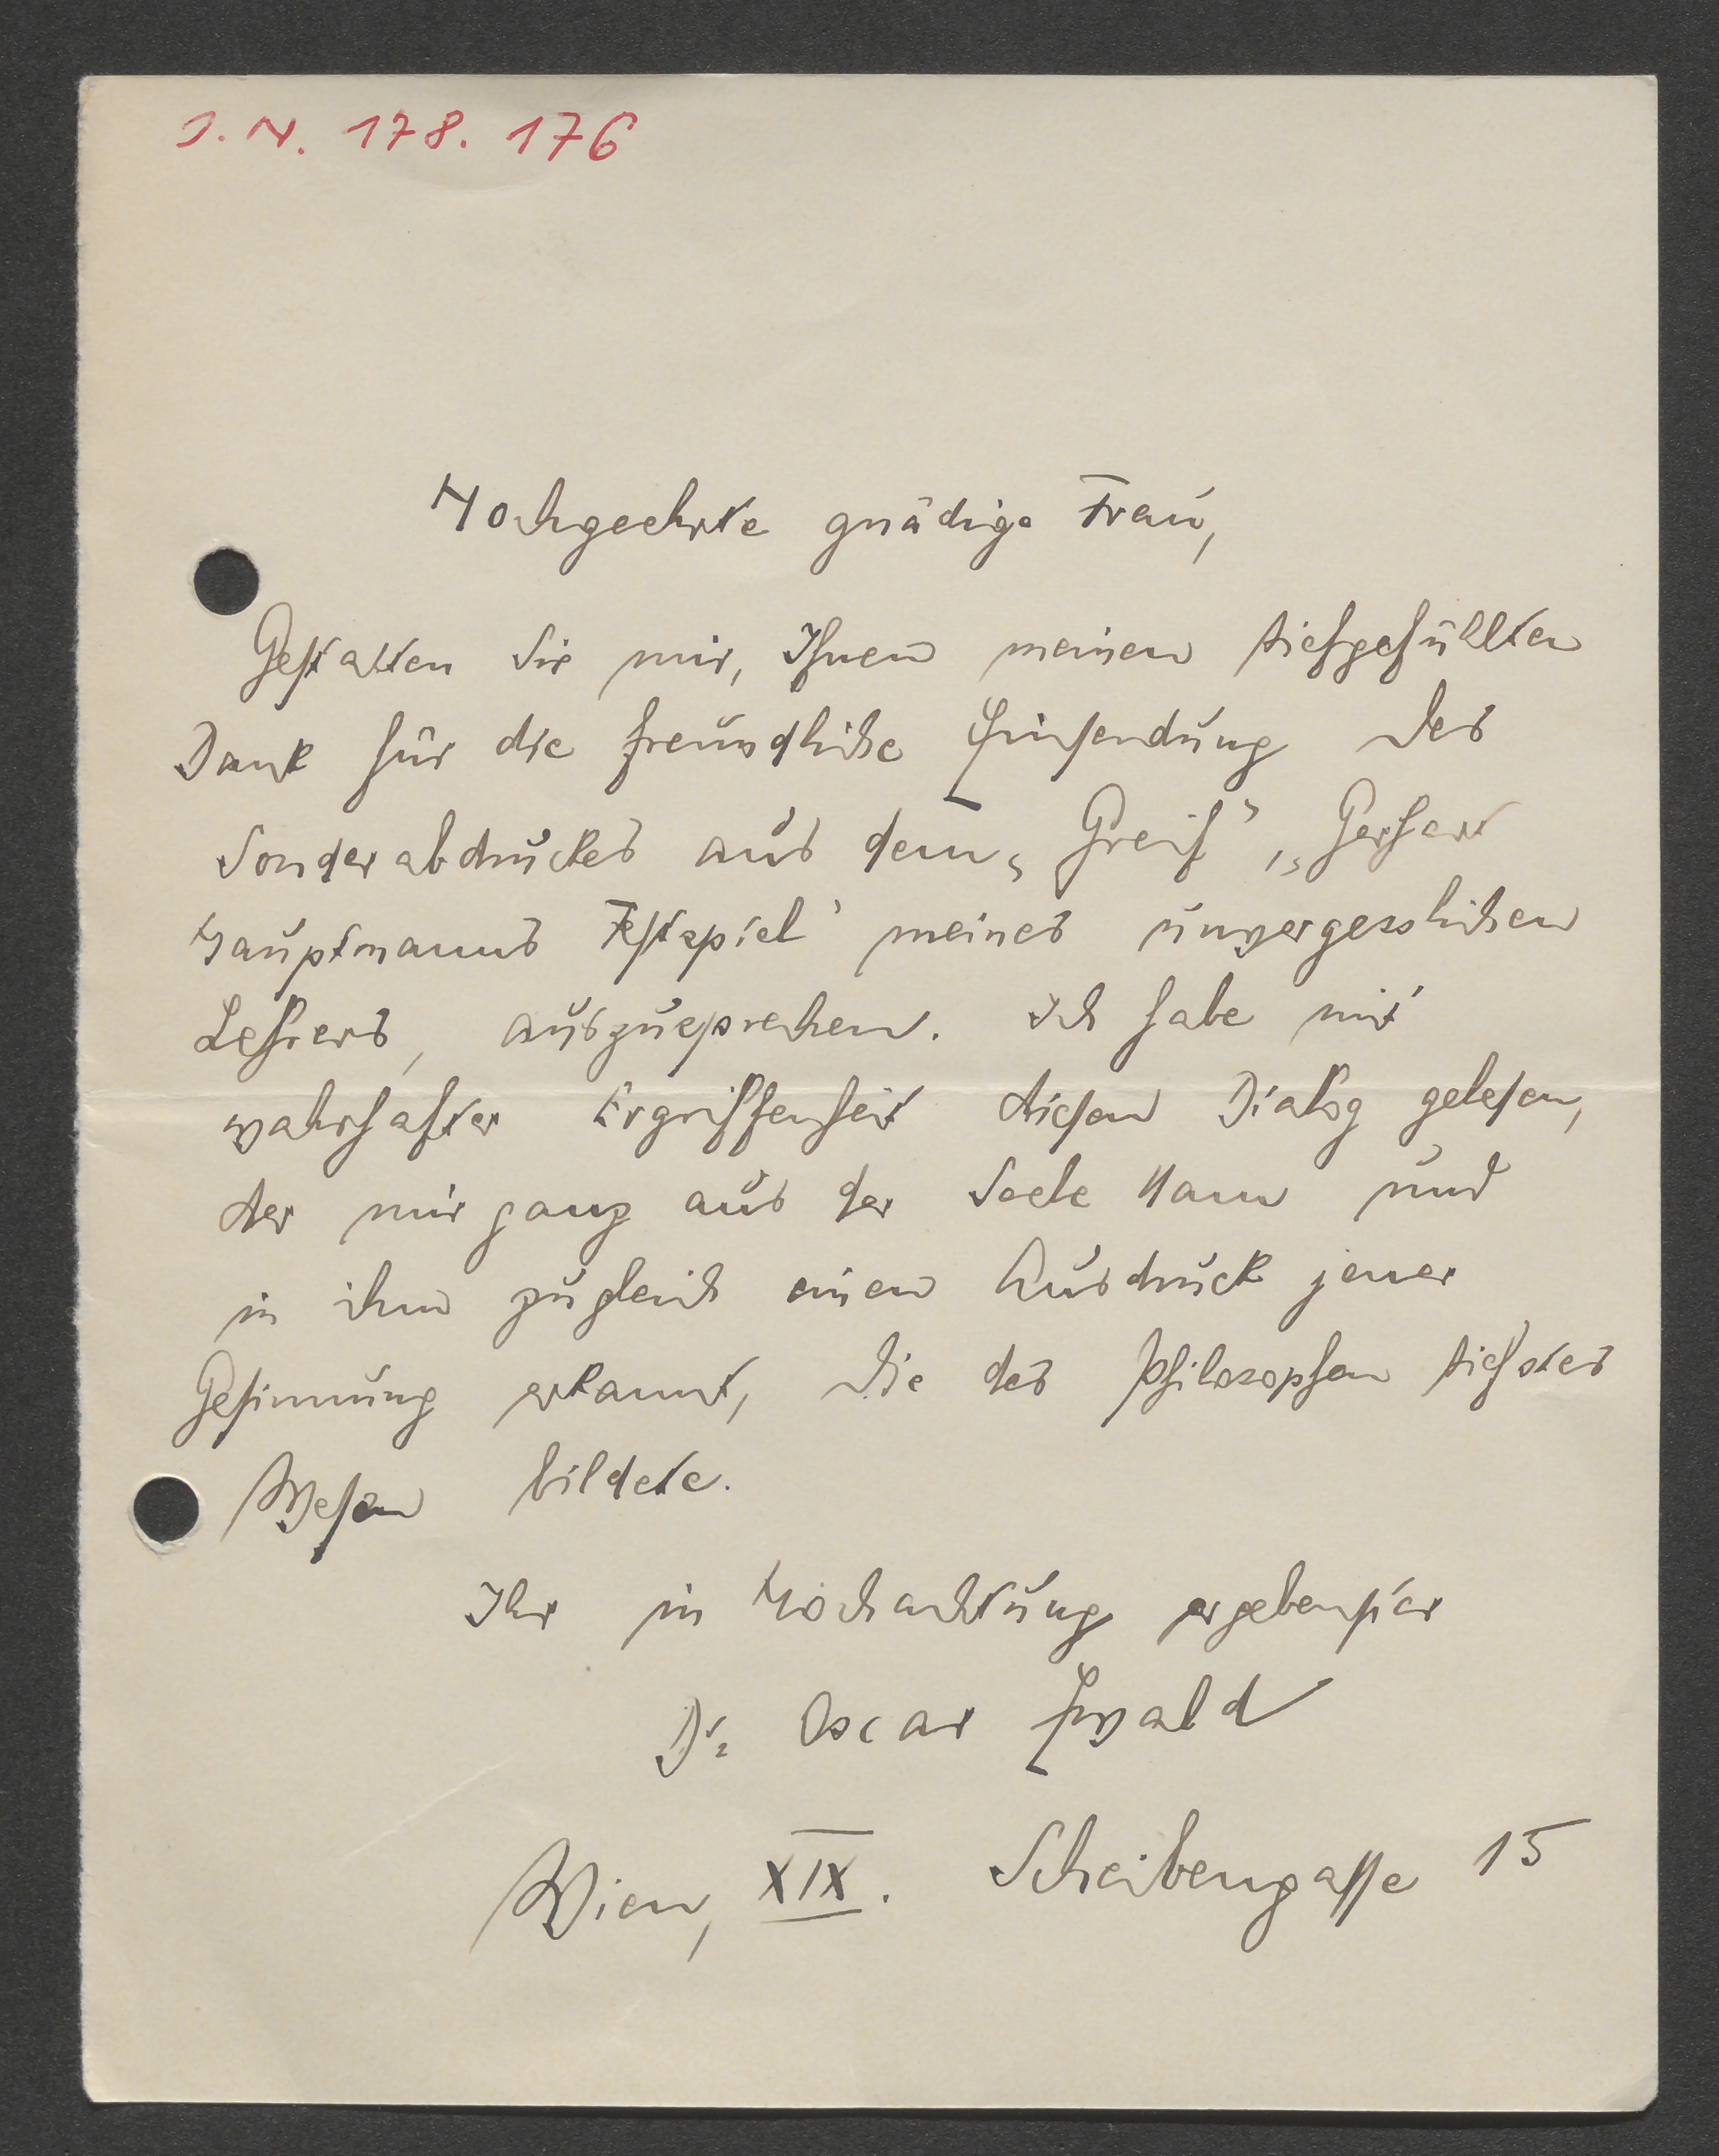 I.N. 178.176
Hochgeehrte gnädige Frau,
Gestatten Sie mir, Ihnen meinen tiefgefühlten
Dank für die freundliche Einsendung des
Sonderabdruckes aus dem „Greif", „Gerhart
Hauptmanns Festspiel" meines unvergesslichen
Lehrers, auszusprechen. Ich habe mit
wahrhafter Ergriffenheit diesen Dialog gelesen,
der mir ganz aus der Seele kam und
in ihm zugleich einen Ausdruck jener
Gesinnung erkannt, die des Philosophen tiefstes
Wesen bildete.
Ihr in Hochachtung ergebenster
Dr. Oscar Ewald
Wien, XIX. Scheibengasse 15